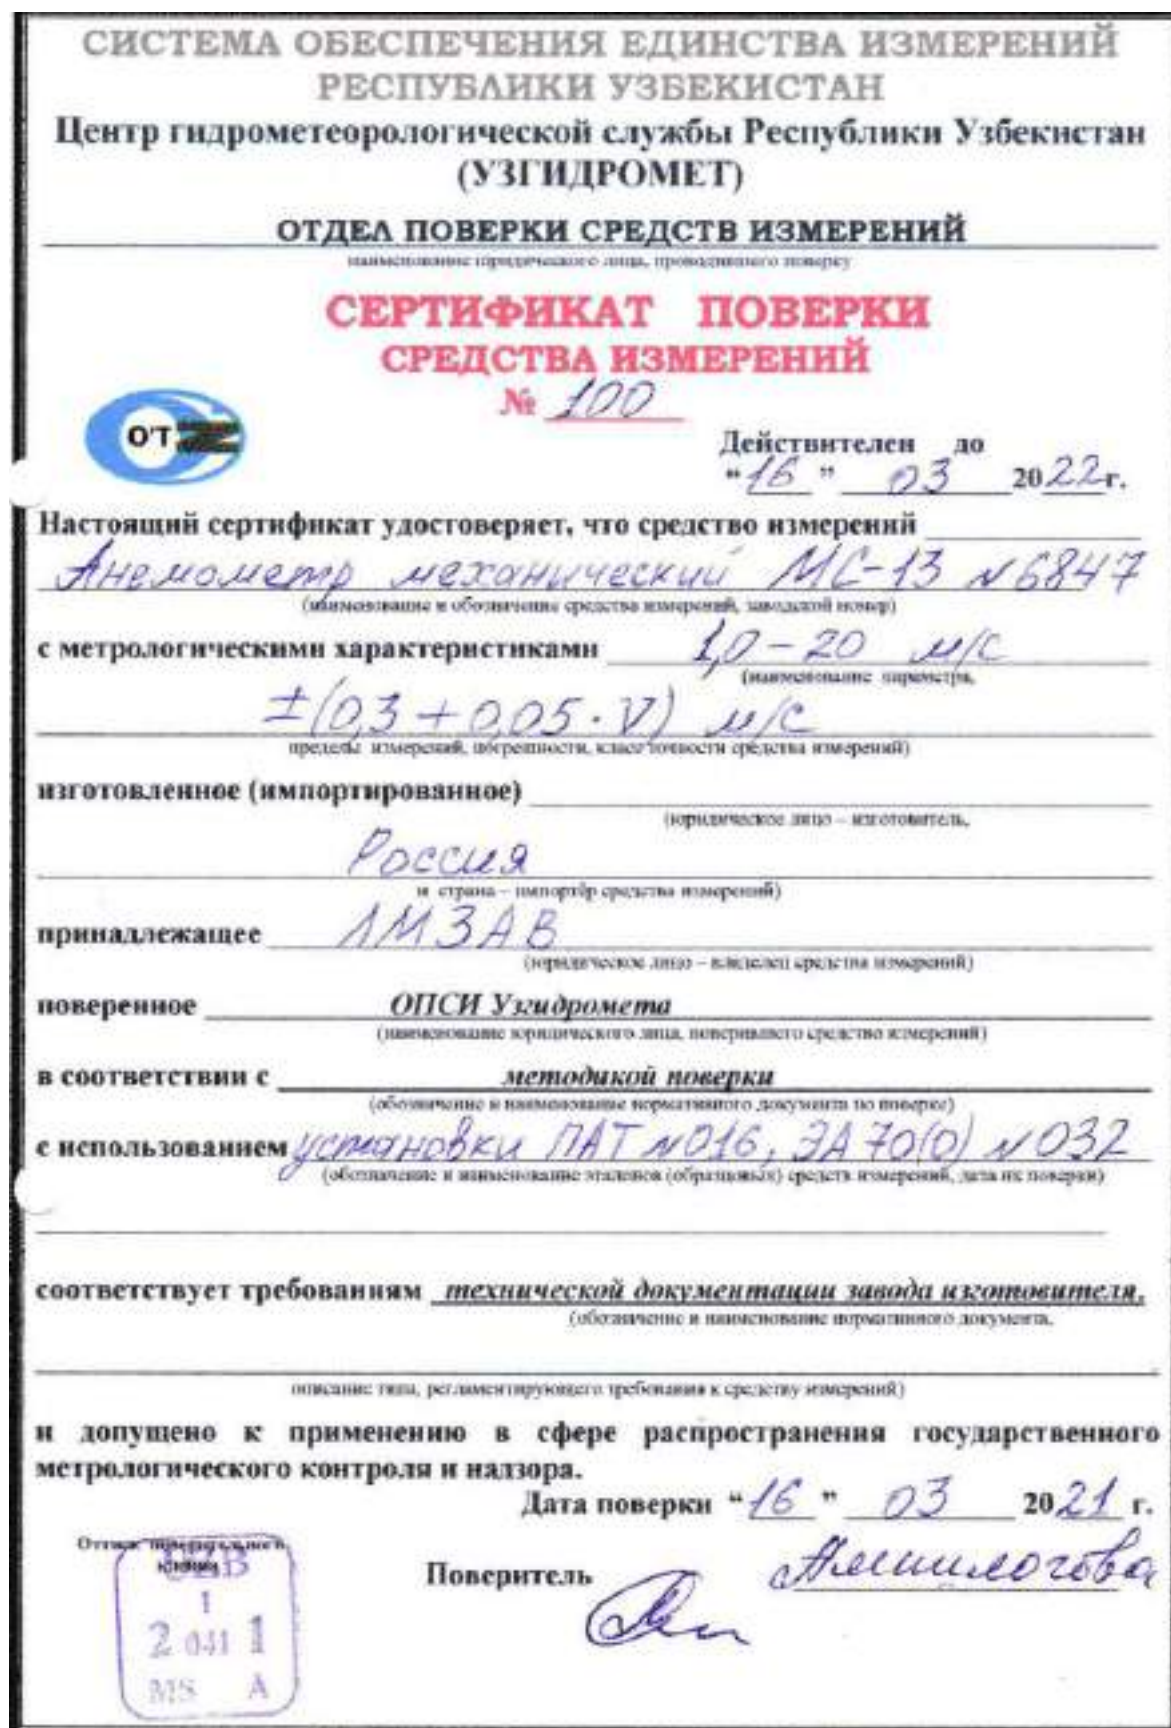 СИСТЕМА ОБЕСПЕЧЕНИЯ ЕДИНСТВА ИЗМЕРЕНИЙ
РЕСПУБЛИКИ УЗБЕКИСТАН
Центр гидрометеорологической службы Республики Узбекистан
(УЗГИДРОМЕТ)
ОТДЕЛ ПОВЕРКИ СРЕДСТВ ИЗМЕРЕНИЙ
наименование юридического лица, проводившего поверку
СЕРТИФИКАТ ПОВЕРКИ
СРЕДСТВА ИЗМЕРЕНИЙ
№ 100
O'T
Действителен до
“16” 03 2022г.
Настоящий сертификат удостоверяет, что средство измерений
Анемометр механический МС-13 №6847
(наименование и обозначение средства измерений, заводской номер)
с метрологическими характеристиками 1,0-20 м/с
(наименование параметра,
±(0,3+0,05·V) м/с
пределы измерений, погрешности, класс точности средства измерений)
изготовленное (импортированное)
(юридическое лицо – изготовитель,
Россия
и страна – импортёр средства измерений)
принадлежащее ЛМЗАВ
(юридическое лицо – владелец средства измерений)
поверенное ОПСИ Узгидромета
(наименование юридического лица, поверившего средство измерений)
в соответствии с методикой поверки
(обозначение и наименование нормативного документа по поверке)
с использованием установки ПАТ №016, ЭА70(0) №032
(обозначение и наименование эталонов (образцовых) средств измерений, дата их поверки)
соответствует требованиям технической документации завода изготовителя.
(обозначение и наименование нормативного документа,
описание типа, регламентирующего требования к средству измерений)
и допущено к применению в сфере распространения государственного
метрологического контроля и надзора.
Дата поверки “16” 03 2021 г.
Оттиск поверительного
клейма
UZB
1
2 041 1
MS A
Поверитель